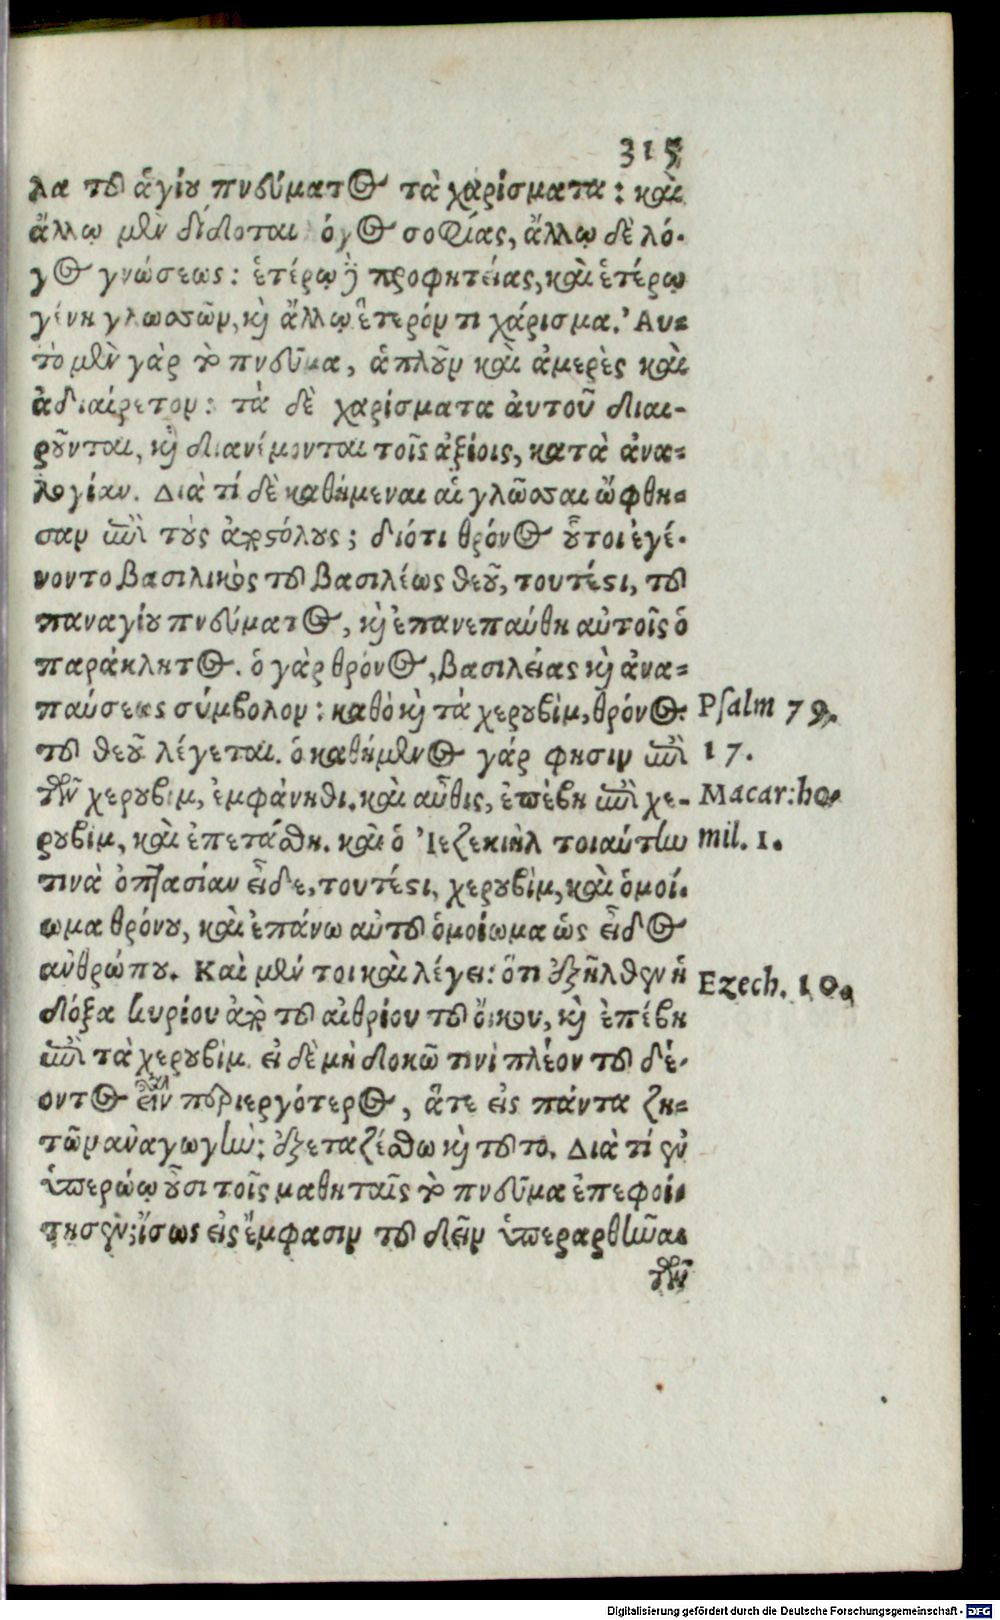 315
λα τοῦ ἁγίου πνεύματος τὰ χαρίσματα: καὶ
ἄλλῳ μὲν δίδοται όγος σοφίας, ἄλλῳ δὲ λό-
γος γνώσεως: ἑτέρῳ δὲ προφητείας, καὶ ἑτέρῳ
γένη γλωσσῶν, καὶ ἄλλῳ ἕτερόν τι χάρισμα. Ἀυ-
τὸ μὲν γὰρ τὸ πνεῦμα, ἁπλοῦν καὶ ἀμερὲς καὶ
ἀδιαίρετον: τὰ δὲ χαρίσματα ἀυτοῦ διαι-
ροῦνται, καὶ διανέμονται τοῖς ἀξίοις, κατὰ ἀνα-
λογίαν. Διὰ τί δὲ καθήμεναι αἱ γλῶσσαι ὤφθη-
σαν ἐπὶ τοὺς ἀποστόλους; διότι θρόνος οὗτοι ἐγέ-
νοντο βασιλικὸς τοῦ βασιλέως θεοῦ, τουτέστι, τοῦ
παναγίου πνεύματος, καὶ ἐπανεπαύθη αὐτοῖς ὁ
παράκλητος. ὁ γὰρ θρόνος, βασιλείας καὶ ἀνα-
παύσεως σύμβολον: καθὸ καὶ τὰ χερουβὶμ, θρόνος
τοῦ θεοῦ λέγεται. ὁ καθήμενος γάρ φησιν ἐπὶ
τῶν χερουβιμ, ἐμφάνηθι. καὶ αὖθις, ἐπέβη ἐπὶ χε-
ρουβιμ, καὶ ἐπετάσθη. καὶ ὁ Ἰεζεκιὴλ τοιαύτην
τινὰ ὀπτασίαν εἶδε, τουτέστι, χερουβὶμ, καὶ ὁμοί-
ωμα θρόνου, καὶ ἐπάνω αὐτοῦ ὁμοίωμα ὡς εἶδος
ανθρώπου. Καὶ μέν τοι καὶ λέγει: ὅτι ἐξῆλθεν ἡ
δόξα κυρίου ἀπὸ τοῦ αἰθρίου τοῦ ὄικου, καὶ ἐπέβη
ἐπὶ τὰ χερουβὶμ. εἰ δὲ μὴ δοκῶ τινὶ πλέον τοῦ δέ-
οντος εἶναι περιεργότερος, ἅτε εἰς πάντα ζη-
τῶν αναγωγὴν; ἐξεταζέσθω καὶ τοῦτο. Διὰ τί ἐν
ὑπερώῳ οὖσι τοῖς μαθηταῖς τὸ πνεῦμα ἐπεφοί-
τησεν; ἴσως εἰς ἔμφασιν τοῦ δεῖν ὑπεραρθῆναι
τῶν
Psalm 79.
17.
Macar: ho-
mil. 1.
Ezech. 10.
Digitalisierung gefördert durch die Deutsche Forschungsgemeinschaft - DFG